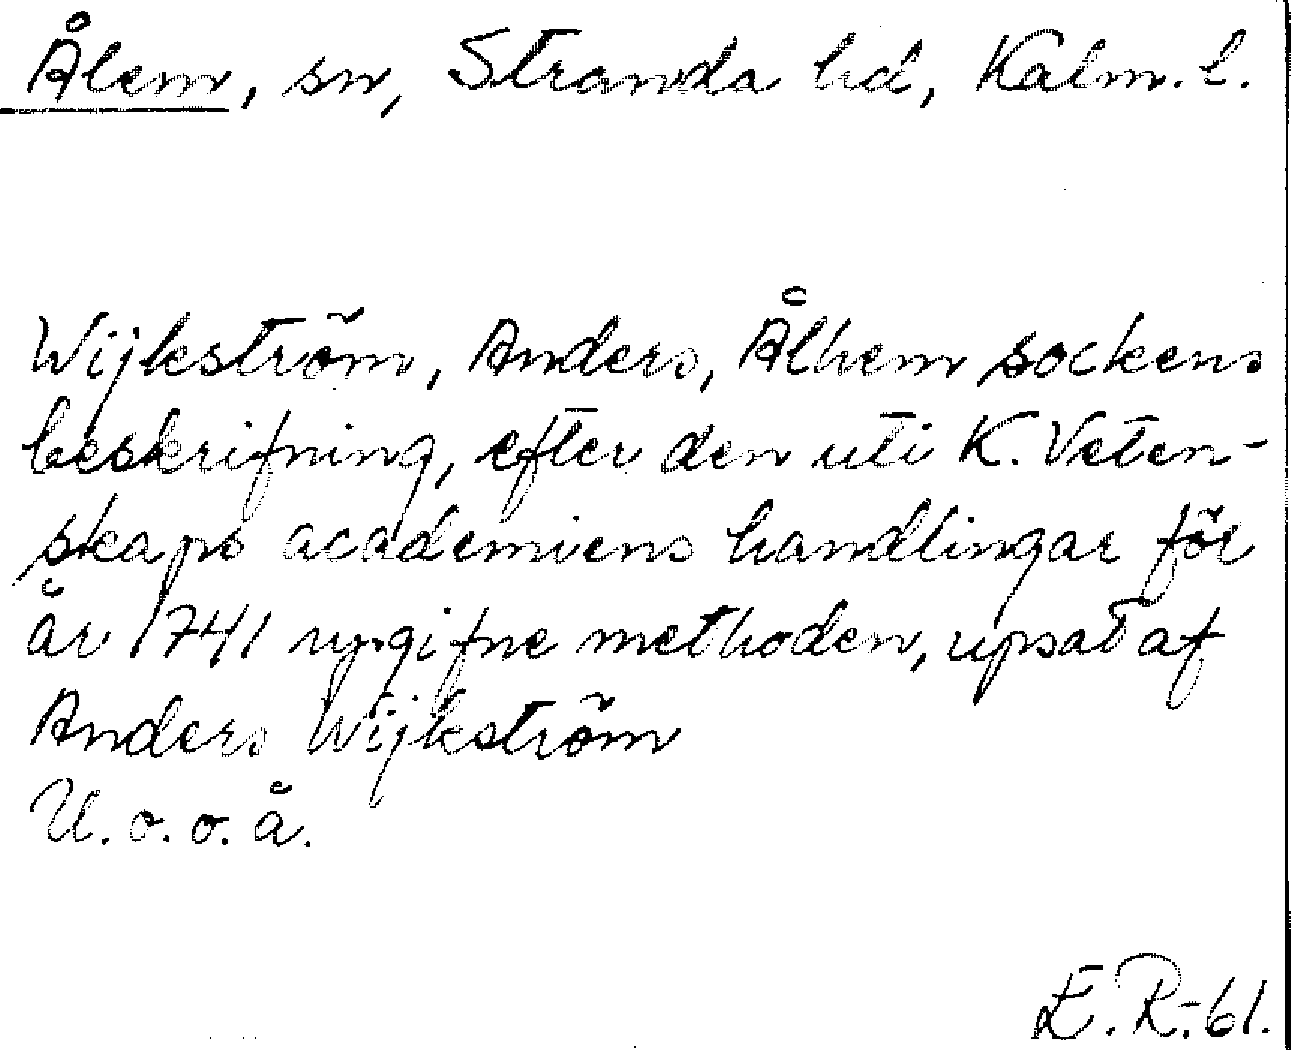 Ålem, sn, Stranda hd, Kalm. l.
Wijkström, Anders, Ålhem sockens
beskrifning, efter den uti K. Veten-
skaps academiens handlingar för
år 1741 upgifne methoden, upsat af
Anders Wijkström
U. o. o. å.
E. R.-61.